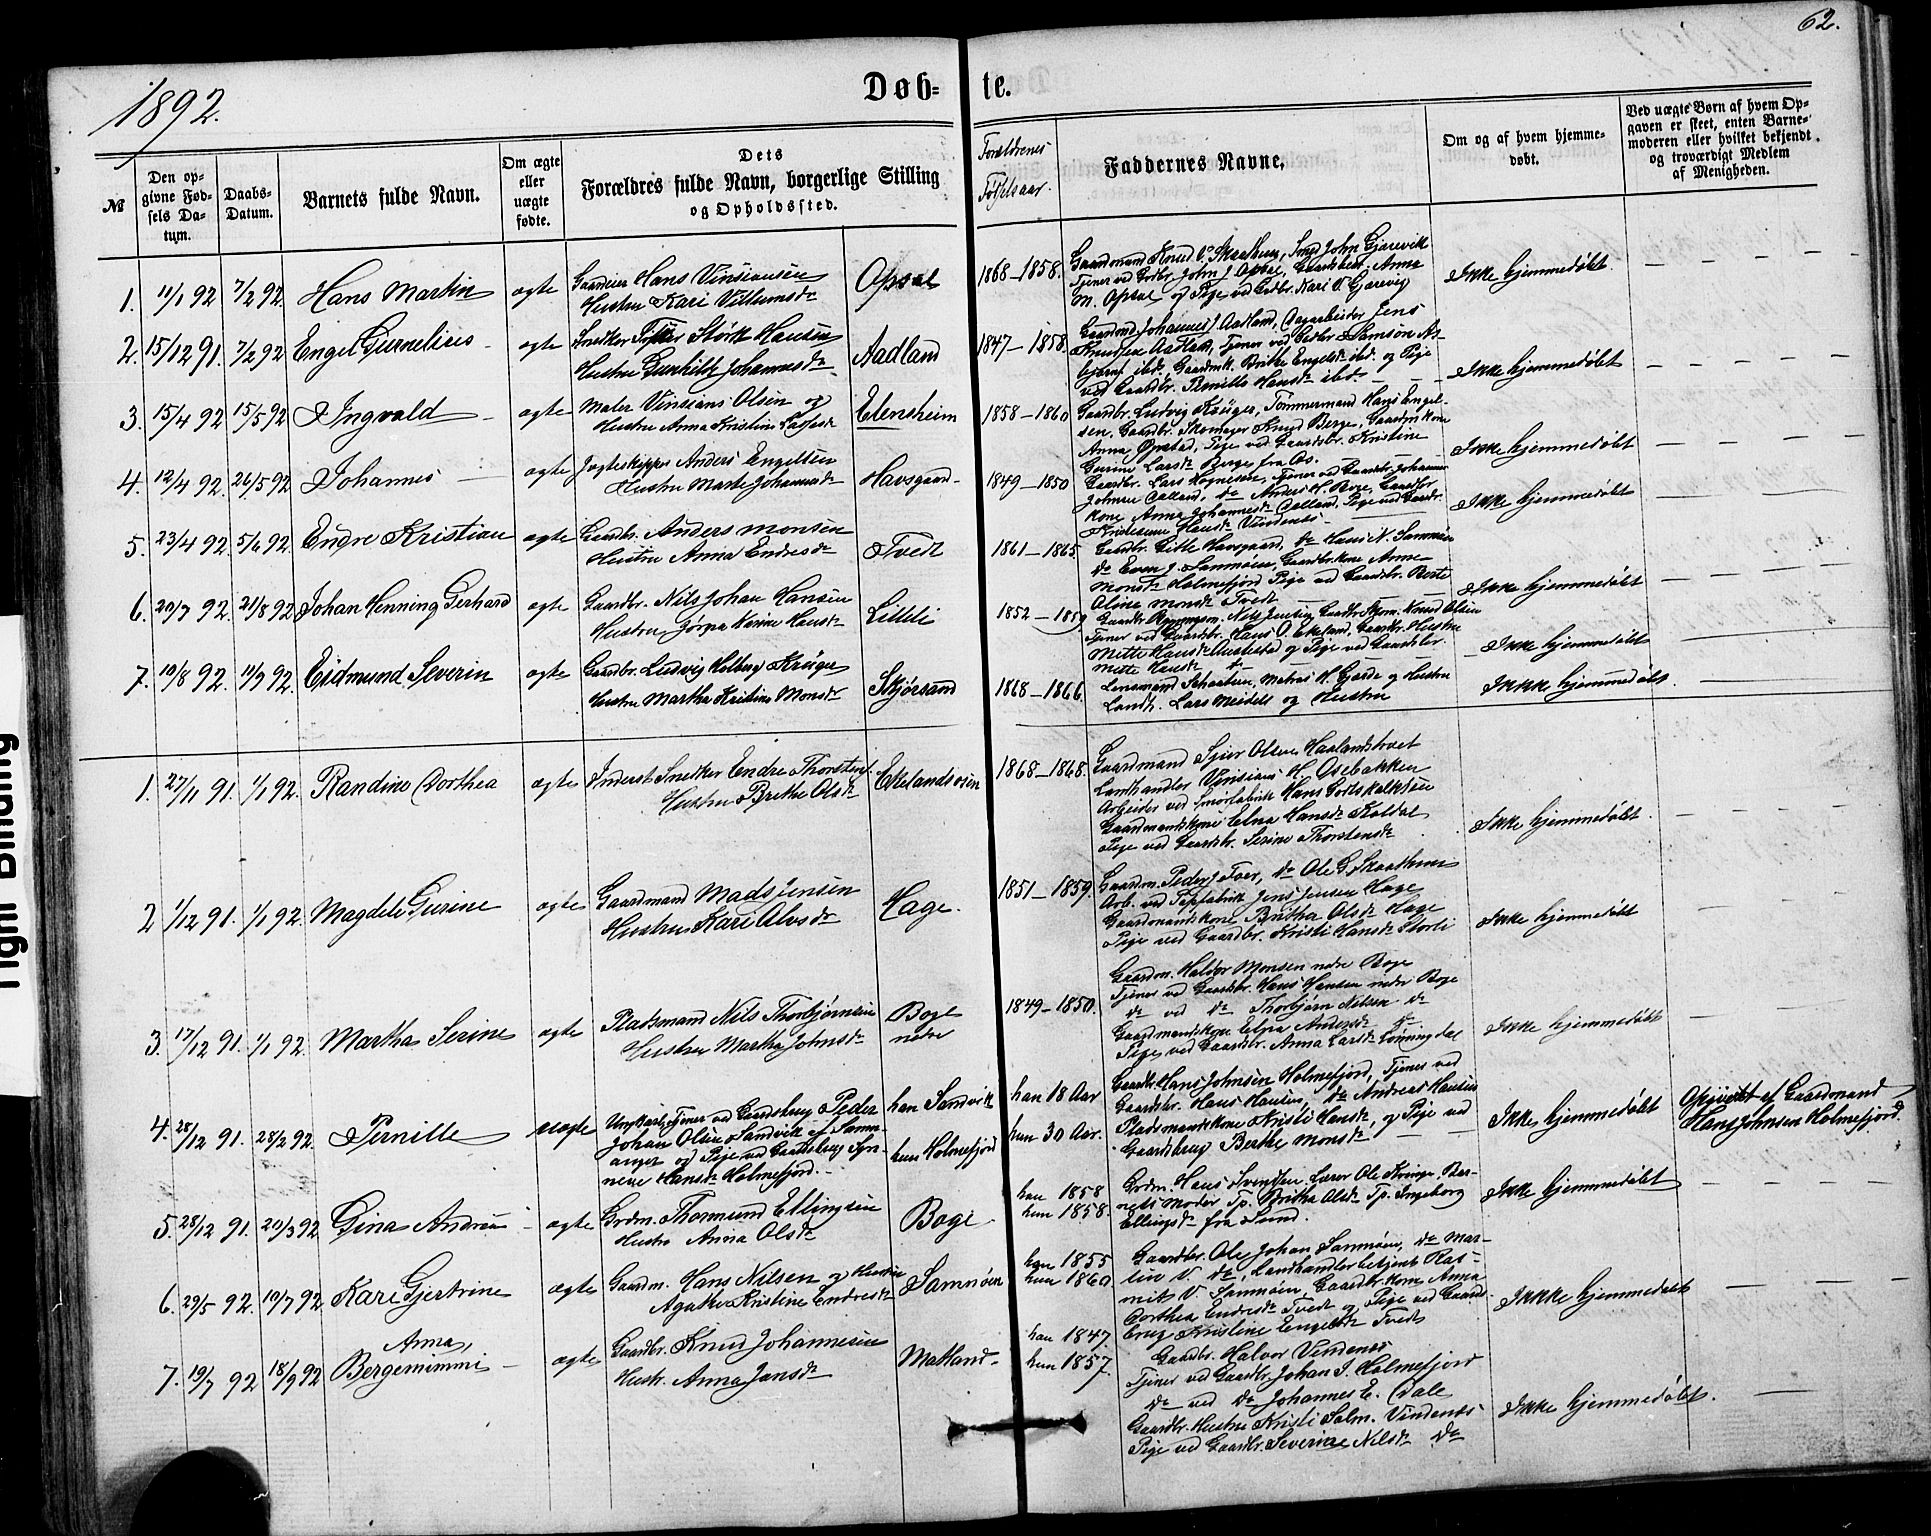 62.
1892.
Døb= te.
№
Den op-
givne Fød-
sels Da-
tum.
Daabs-
Datum.
Barnets fulde Navn.
Om ægte
eller
uægte
fødte.
Dets
Forældres fulde Navn, borgerlige Stilling
og Opholdssted.
Forældrenes
Fødselsaar.
Faddernes Navne.
Om og af hvem hjemme-
døbt.
Ved uægte Børn af hvem Op-
gaven er skeet, enten Barne-
moderen eller hvilket bekjendt
og troværdigt Medlem
af Menigheden.
1. 11/1 92 7/2 92. Hans Martin ægte Gaardeier Hans Vinsiansen
Hustru Kari Villumsdr Opsal 1868-1858.
Gaardmand Knud O. Skaathun, Smed John Gjærevik
Tjener ved Grdbr. John J. Opsal, Gaardbkone Anna
M. Opsal og Pige ved Grdbr. Kari Gjærevig
Ikke hjemmedøbt.
2. 15/12 91. 7/2 92 Engel Gurnelius ægte Snedker Størk Hansen
Hustru Gunhild Johannesdr Aadland 1847-1858.
Gaardmd Johannes J. Aadland, Dagarbeider Jens
Knudsen Aadland, Tjener ved Grdbr Samson As-
bjørns. ibd. Brithe Engelsdr ibd. og Pige
ved Gaardbr. Pernille Hansdr ibd.
Ikke hjemmedøbt
3. 15/4 92 15/5 92 Ingvald ægte Maler Vinsians Olsen og
Hustru Anna Kristine Elensheim 1858-1860
Gaardbr. Ludvig Krüger, Tømmermand Hans Engel-
sen. Gaardbr. Skomager Knud Berge, Gaardmkone
Anna Øvredal, Pige ved Gaardsbr. Kristine
Gurine Larsdr Berge fra Os.
Ikke hjemmedøbt
4. 12/4 92. 26/5 92 Johannes ægte Jægteskipper Anders Engelsen
Hustru Marte Johannesdr Havsgaard 1849-1850
Gaardbr. Lars Magnesen, Tjener ved Gaardbr. Johannes
Johnsen Aadland, do Anders H. Bore, Gaardbr
kone Anna Johannesdr Aadland, Pige ved Gaardbr.
Kristense Hansdr Vindenes
Ikke hjemmedøbt
5. 23/4 92 5/6 92. Endre Kristian ægte Gaardbr. Anders Monsen
Hustru Anna Endresdr Tvedt 1861-1865.
Gaardbr. Gitle Havsgaard, do Hans N. Samnøen
do Even J. Samnøen, Gaardbr.kone Anna
Monsdr Holmefjord Pige ved Gaardbr. Berte
Oline Monsdr Tvedt
Ikke hjemmedøbt
6. 20/7 92. 21/8 92 Johan Henning Gerhard ægte Gaardbr. Nils Johan Hansen
Hustru Jørgine Hansdr Lilleli 1852-1859
Nils Jensen, Gaardbr. Skom. Knud Olsen
Tjener ved Gaardbr. Hans O. Ekeland, Gaardbr. Hustru
Mette Hansdr og Pige ved Gaardbr.
Mette Hansdr do
Ikke hjemmedøbt
7. 10/8 92. 11/9 92. Eidmund Severin ægte Gaardbr. Ludvig Holberg Krüger
Hustru Martha Kristine Monsdr Skjørsand 1868-1866.
Lensmand Schartun, Matias H. Gjerde og Hustru
Landh. Lars Meidell og Hustru
Ikke hjemmedøbt.
1. 27/11 91. 1/1 92. Randine Dorthea ægte Inderst Snedker Endre Thorstens.
Hustru Brethe Olsdr Ekelandsosen 1868-1868.
Gaardmand Sjur Olsen Haalandstvet
Landhandler Vinsians H. Osebakken
Arbeider ved Smørfabrik Hans Gotskalksen
Gaardmandskone Elna Hansdr Koldal
Pige ved Gaardbr. Serine Thorstensdr
Ikke hjemmedøbt.
2 1/12 91. 1/1 92. Magdele Gurine ægte Gaardmand Mads Jensen
Hustru Kari Olvsdr Hage. 1851-1859.
Gaardm. Peder J. Tver, do Ole G. Skaathun
Arb. ved Papfabrik Jens Jensen Hage
Gaardmandskone Britha Olsdr Hage
Pige ved Gaardbr. Kristi Hansdr Storli
Ikke hjemmedøbt
3. 17/12 91. 1/1 92. Martha Serine ægte Pladsmand Nils Thorbjørnsen
Hustru Martha Johnsdr Boge
nedre 1849-1850.
Gaardm. Haldor Monsen nedre Boge
Tjener ved Gaardbr. Hans Hansen nedre Boge
do ved do Thorbjørn Nilsen do
Gaardmandskone Elsa Andersdr do
Pige ved Gaardbr. Anna Larsdr Lønningdal
Ikke hjemmedøbt
4. 28/12 91. 28/2 92. Pernille uægte Ungkarl, Tjener ved Gaardsbrug Peder
Johan Olsen Sandvik af Samn-
anger og Pige ved Gaardsbrug Syn-
neve Hansdr Holmefjord.
han Sandvik
hun Holmefjord
han 18 Aar
hun 30 Aar.
Gaardbr. Hans Johnsen Holmefjord, Tjener ved
Gaardsbr. Hans Hansen, do Andreas Hansen
Pladsmandskone Kristi Hansdr, og Pige ved
Gaardsbrug Berthe Monsdr
Ikke hjemmedøbt Opgivet af Gaardmand
Hans Johnsen Holmefjord.
5. 28/12 91. 20/3 92 Gina Andrea ægte Grdm. Thormund Ellingsen
Hustru Anna Olsdr Boge
han 1858
hun 1858.
Grdm. Hans Svendsen, Lærer Ole Kvinge, Bar-
nets Moder Tp. Britha Olsdr Tp. Ingeborg
Ellingsdr fra Sund.
Ikke hjemmedøbt
6. 29/5 92. 10/7 92. Kari Gjertrine ægte Gaardm. Hans Nilsen og Hustru
Agathe Kristine Endresdr Samnøen
han 1855
hun 1860
Gaardbr. Ole Johan Samnøen, do Mar-
tin V. do, Landhandlerbetjent Ras-
mus V Samnøen, Gaardbr.kone Anna
Dorthea Endresdr Tvedt og Pige ved Gaards-
brug Kristine Engelsdr Tvedt
Ikke hjemmedøbt
7. 19/7 92 18/9 92 Anna,
Bergemimmi ægte Gaardbr. Knud Johannesen
Hustr. Anna Jansdr Matland
han 1847
hun 1857.
Gaardbr. Halvor Vindenes
Tjener ved Gaardbr. Johan I. Holmefjord
do ved do Johannes E. Dale
Gaardbr. Hustru Kristi Salm. Vindenes
Pige ved Gaardbr. Severine Nilsdr do
Ikke hjemmedøbt.
Tight Binding